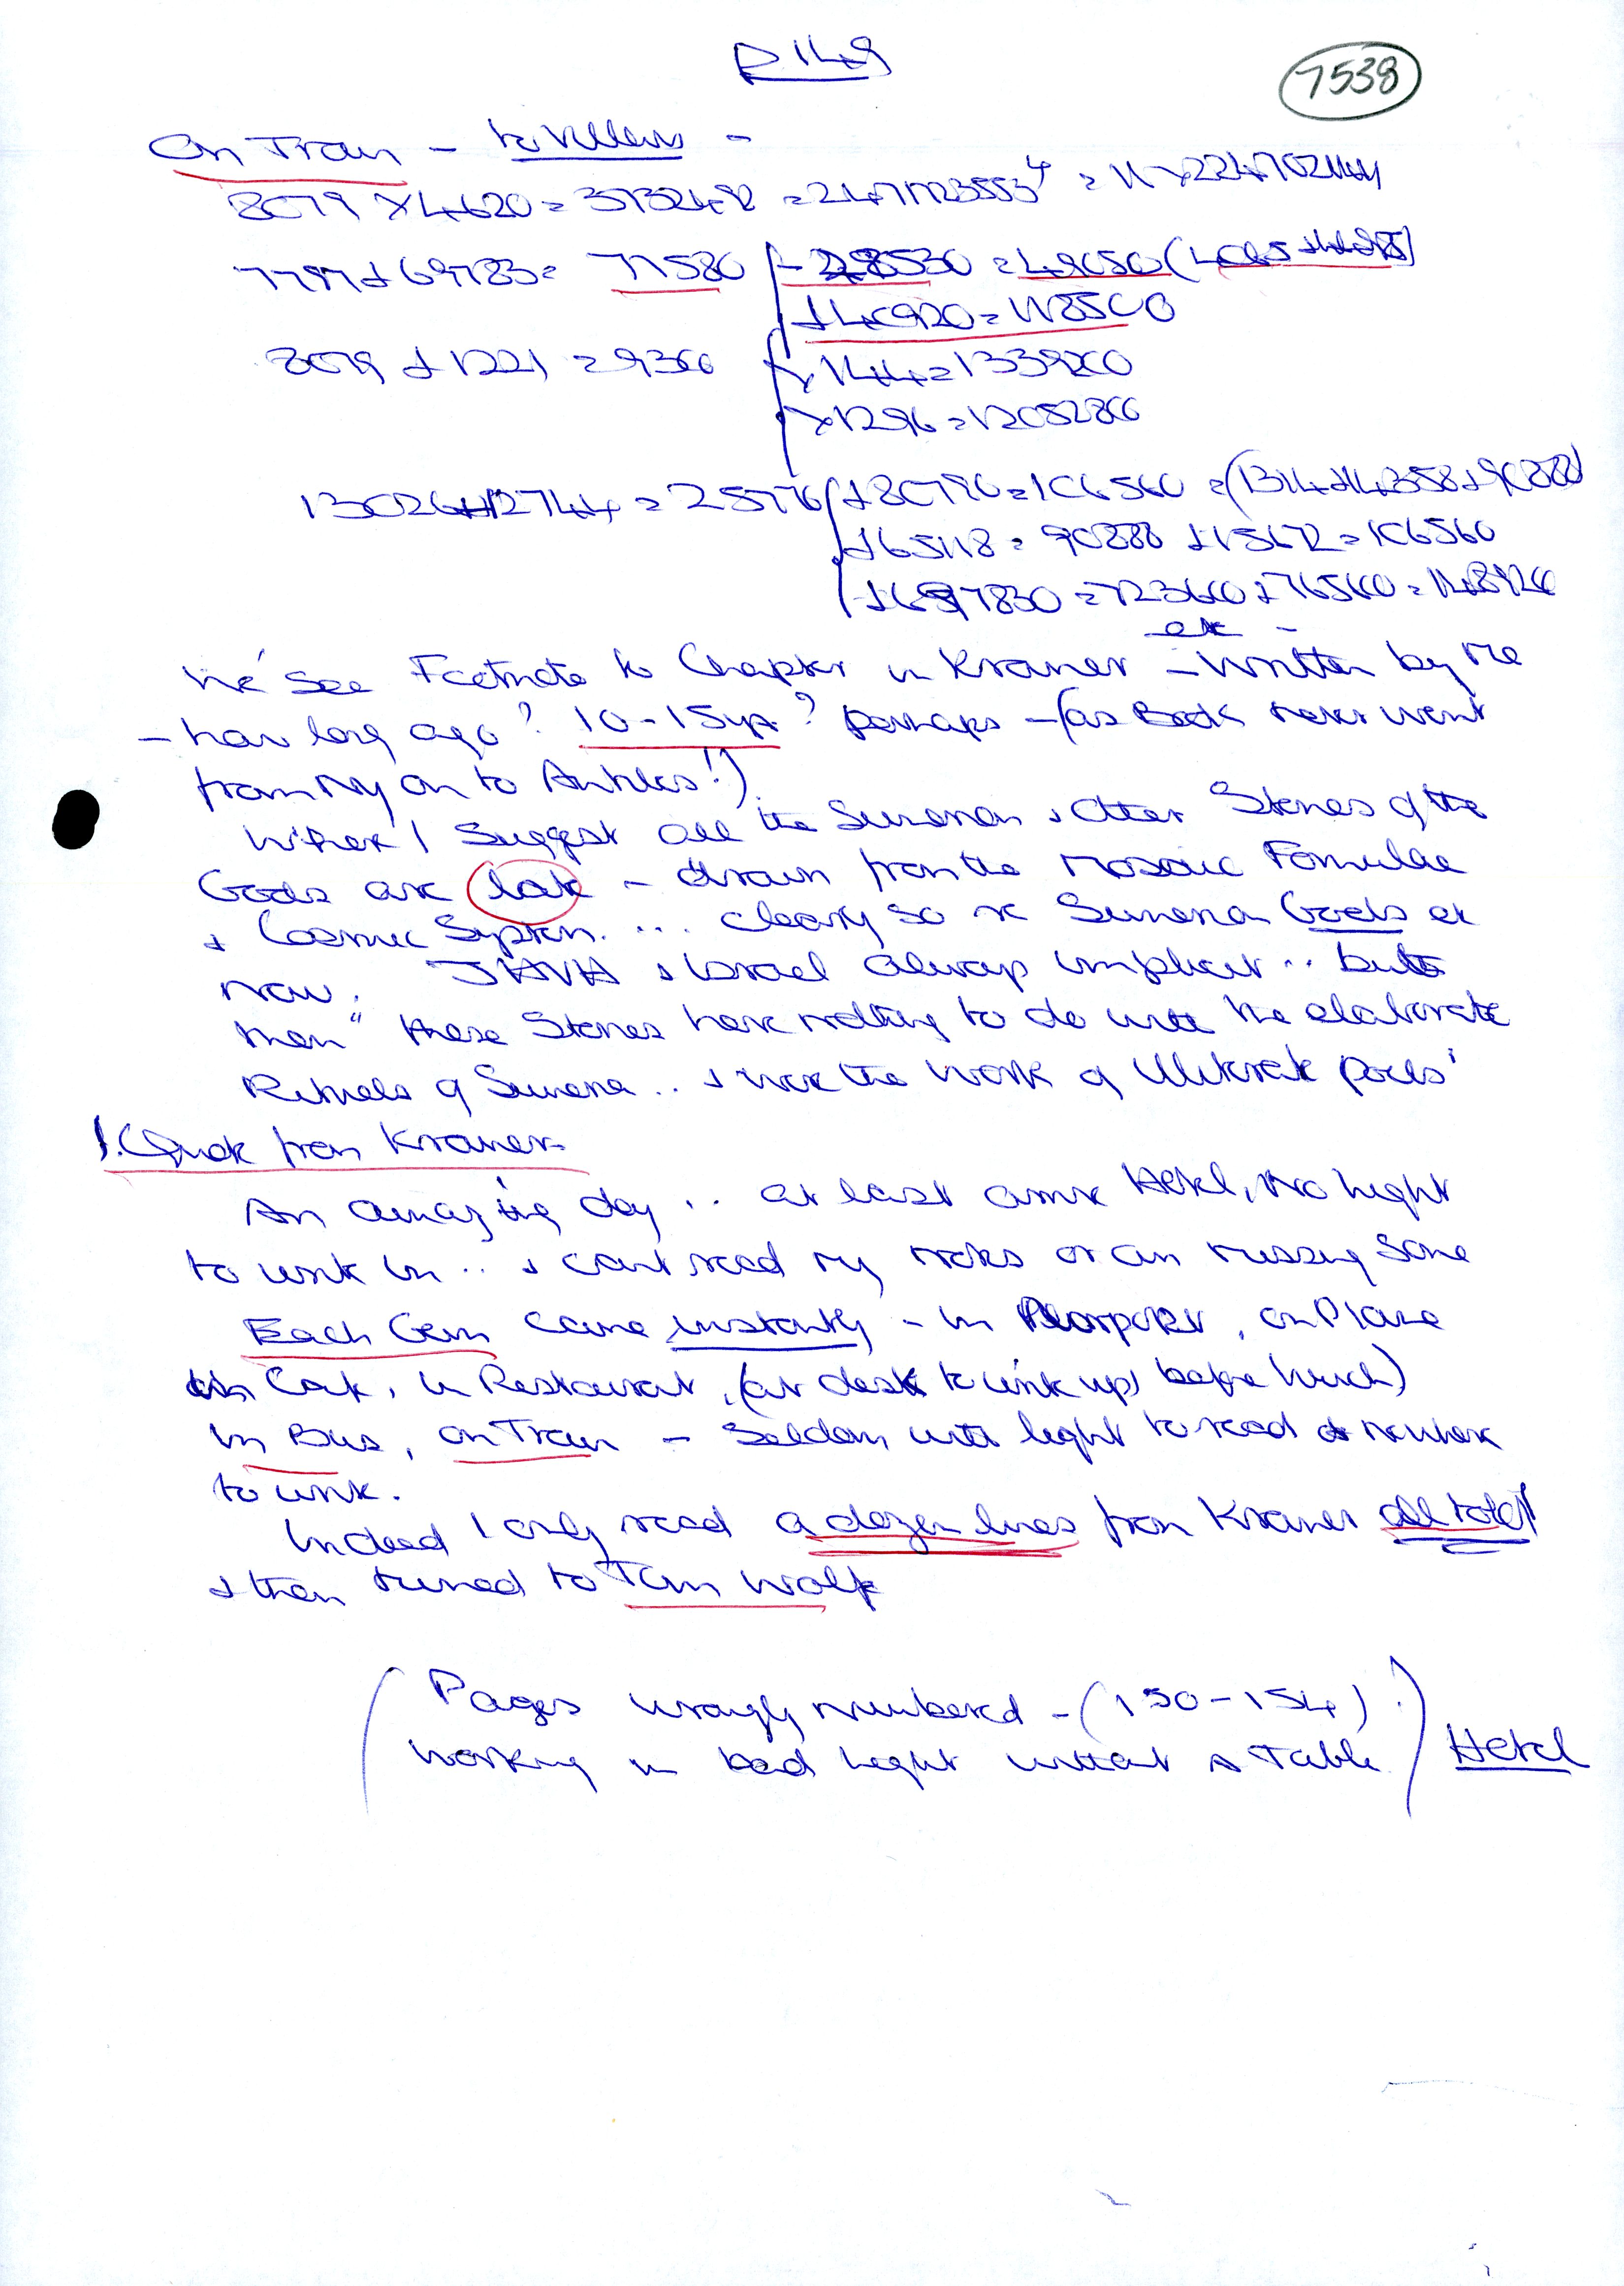 P 149
7538
On Train - to
8079 X 4620 =
7797 + 69783 = 77580
+ 40920 = 118500
8079 + 1221 = 9300
X 144 = 1339200
X 1296 = 12052800
13026 + 12744 = 25770
+ 80790 = 106560 = (1314 + 14358 + 90888)
+ 65118 = 90888 + 15672 = 106560
+ 697830 = 723600 +
see Footnote to Chapter in Kramer - written by me
- how long ago? 10-15 yrs? perhaps - (as Book never went
from NY on to
Where I suggest all the Sumerian & other Stories of the
Gods are late - drawn from the Mosaic Formulae
& Cosmic System. ... clearly so re Sumerian Gods
now. JHVH & Israel always implicit .. but
then "these Stories have nothing to do with the elaborate
Rituals of Sumeria .. & were the work of illiterate poets'
1. Quote from Kramer -
An amazing day .. at last arrive Hotel, No light
to work in .. & can't read my notes or am missing some
Each Gem came instantly - in Airport, on Plane
in Cafe, in Restaurant, (at desk to work up before lunch)
in Bus, on Train - Seldom with light to read & nowhere
to work.
Indeed I only read a dozen lines from Kramer all told!
& then turned to Tom Wolfe
Pages wrongly numbered - (150 - 154)
working in bad light without a Table
Hotel